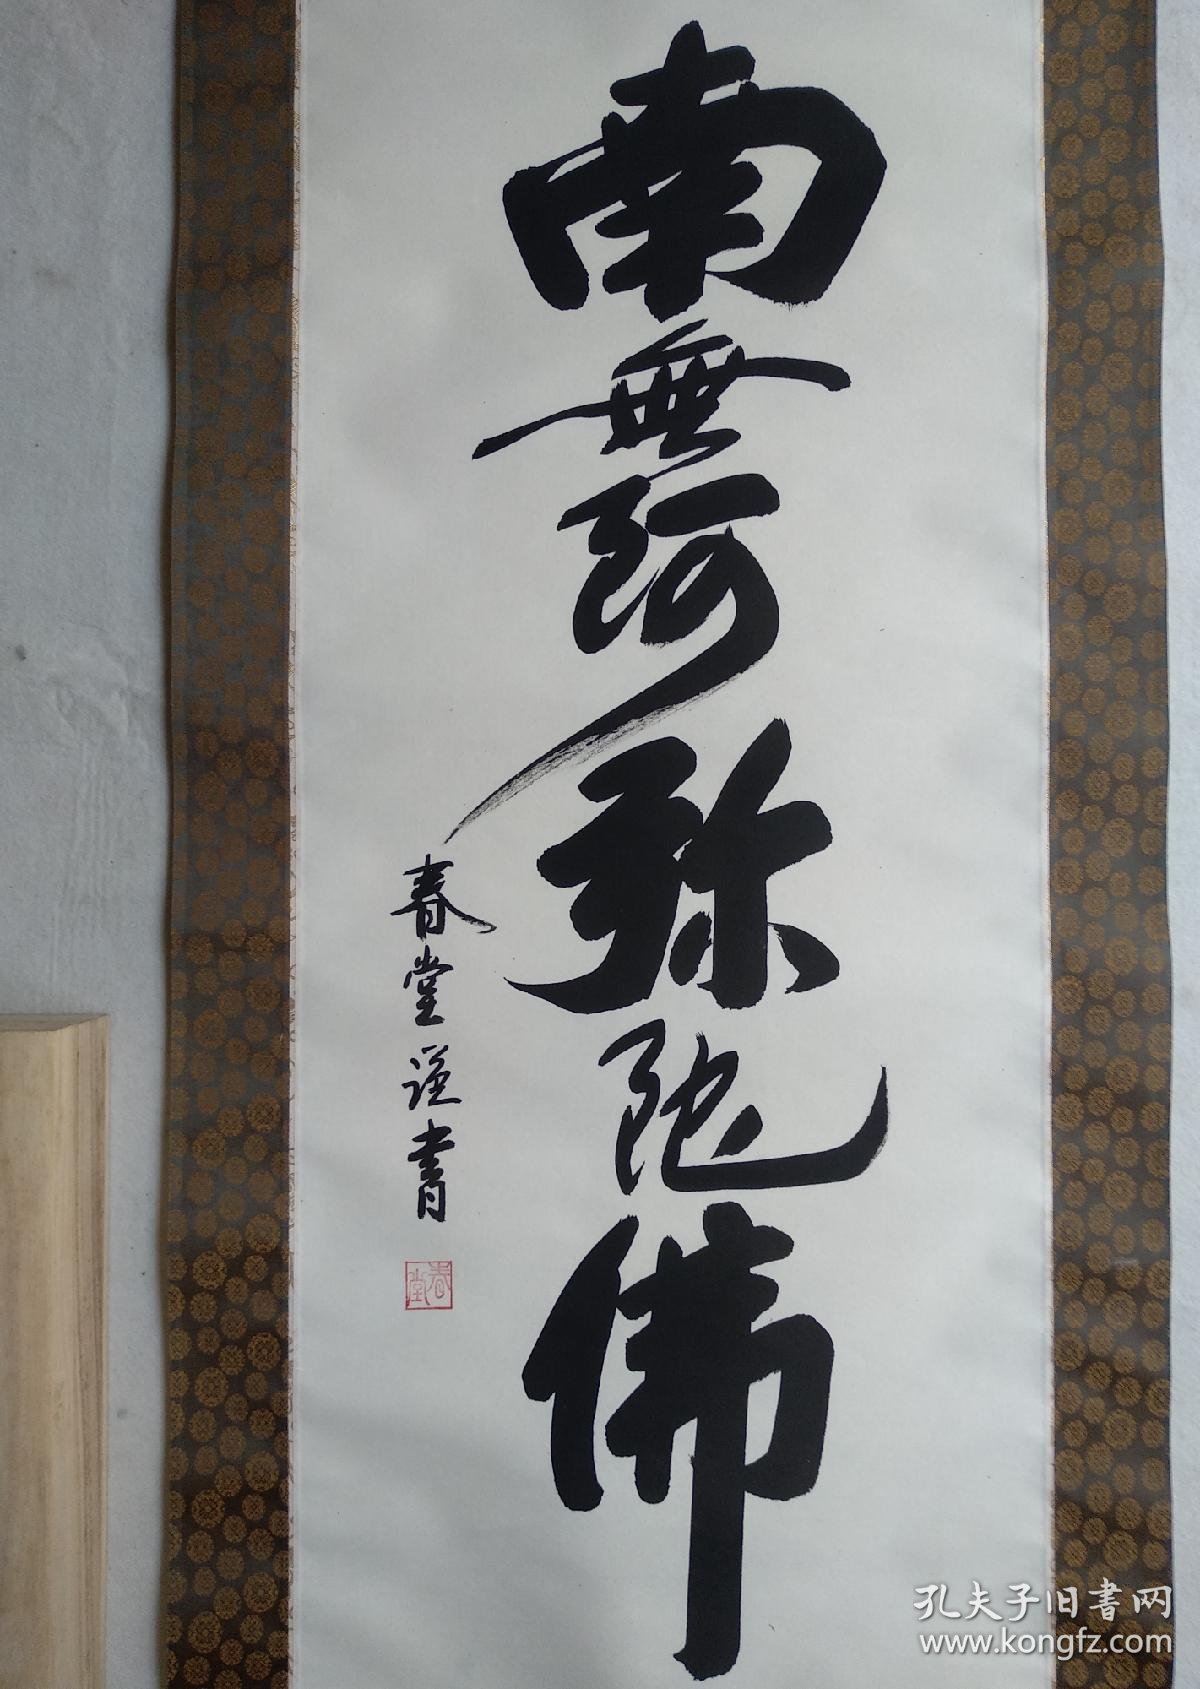 南無阿弥陀佛
春堂謹書
春堂
孔夫子旧書网
www.kongfz.com